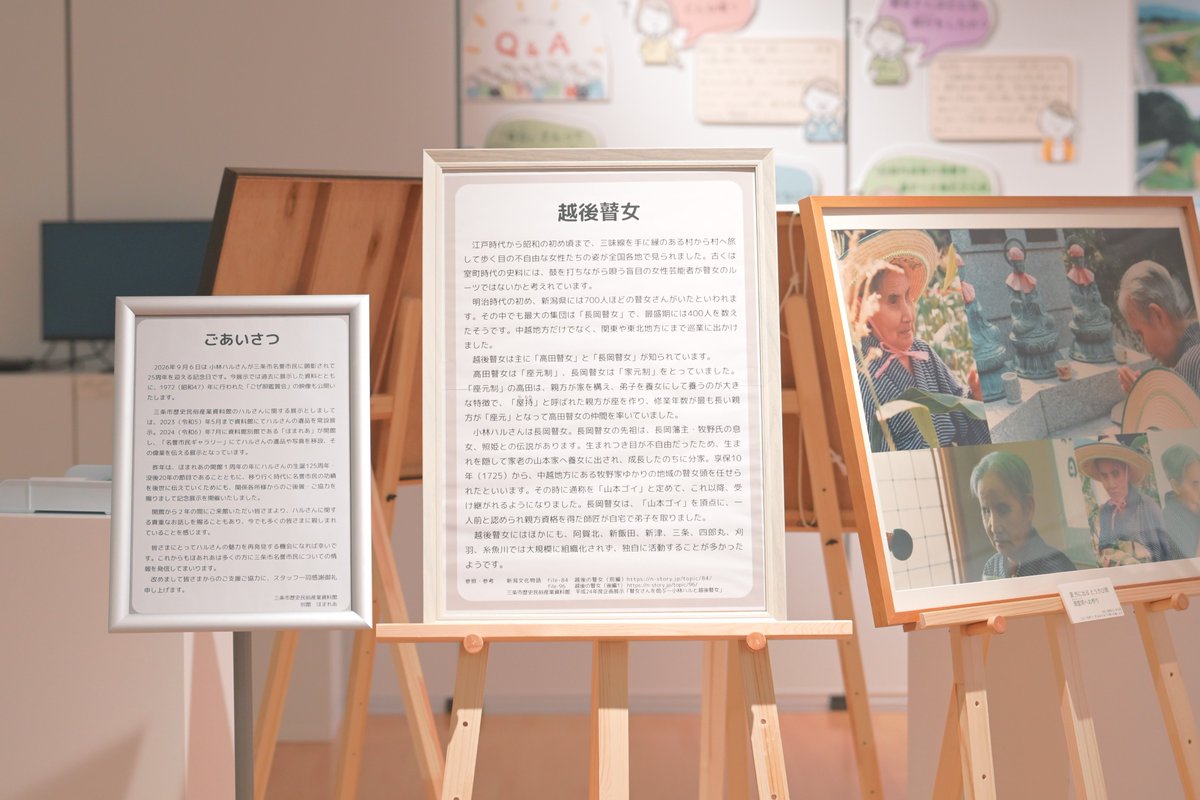 Q&A
ごあいさつ
2026年9月6日は 小林ハルさんが三条市名誉市民に顕彰されて
25周年を迎える記念日です。今展示では過去に展示した資料ととも
に、1972（昭和47）年に行われた「ごぜ唄鑑賞会」の映像も公開い
たします。
三条市歴史民俗産業資料館のハルさんに関する展示としまして
は、2023（令和5）年5月まで資料館にてハルさんの遺品を常設展
示。2024（令和6）年7月に資料館別館である「ほまれあ」が開館
し、「名誉市民ギャラリー」にてハルさんの遺品や写真を移設、そ
の偉業を伝える展示となっています。
昨年は、ほまれあの開館1周年の年にハルさんの生誕125周年・
没後20年の節目であることともに、移り行く時代に名誉市民の功績
を後世に伝えていくためにも、関係各所様からのご後援・ご協力を
賜りまして記念展示を開催いたしました。
開館から2年の間にご来館いただい皆さまより、ハルさんに関する
貴重なお話しを賜ることもあり、今でも多くの皆さまに親しまれ
ていることを感じます。
皆さまにとってハルさんの魅力を再発見する機会になれば幸いで
す。これからもほまれあは多くの方に三条市名誉市民についての情
報を発信してまいります。
改めまして皆さまからのご支援ご協力に、スタッフ一同感謝御礼
申し上げます。
三条市歴史民俗産業資料館
別館 ほまれあ
越後瞽女
江戸時代から昭和の初め頃まで、三味線を手に縁のある村から村へ旅
して歩く目の不自由な女性たちの姿が全国各地で見られました。古くは
室町時代の史料には、鼓を打ちながら唄う盲目の女性芸能者が瞽女のル
ーツではないかと考えれています。
明治時代の初め、新潟県には700人ほどの瞽女さんがいたといわれま
す。その中でも最大の集団は「長岡瞽女」で、最盛期には400人を数え
たそうです。中越地方だけでなく、関東や東北地方にまで巡業に出かけ
ました。
越後瞽女は主に「高田瞽女」と「長岡瞽女」が知られています。
高田瞽女は「座元制」、長岡瞽女は「家元制」をとっていました。
「座元制」の高田は、親方が家を構え、弟子を養女にして養うのが大き
な特徴で、「屋持」と呼ばれた親方が座を作り、修業年数が最も長い親
方が「座元」となって高田瞽女の仲間を率いていました。
小林ハルさんは長岡瞽女。長岡瞽女の先祖は、長岡藩主・牧野氏の息
女、照姫との伝説があります。生まれつき目が不自由だったため、生ま
れを隠して家老の山本家へ養女に出され、成長したのちに分家。享保10
年（1725）から、中越地方にある牧野家ゆかりの地域の瞽女頭を任せら
れたといいます。その時に通称を「山本ゴイ」と定めて、これ以降、受
け継がれるようになりました。長岡瞽女は、「山本ゴイ」を頂点に、一
人前と認められ親方資格を得た師匠が自宅で弟子を取りました。
越後瞽女にはほかにも、阿賀北、新飯田、新津、三条、四郎丸、刈
羽、糸魚川では大規模に組織化されず、独自に活動することが多かった
ようです。
参照・参考 新潟文化物語 file-84 越後の瞽女（前編）https://n-story.jp/topic/84/
file-96 越後の瞽女（後編）https://n-story.jp/topic/96/
三条市歴史民俗産業資料館 平成24年度企画展示「瞽女さんを偲ぶー小林ハルと越後瞽女」